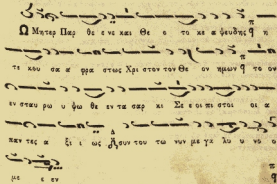 Ω Μητερ Παρ θε ε νε και Θε ο το κε α ψευδης
τε κου σα α φρα στως Χρι στον τον Θε ον ημων το ον
εν σταυ ρω υ ψω θε εν τα σαρ κι Σε ε οι πι στοι οι α
παν τες α ξι ι ως Δ συν του τω νυν με γα λυ υ νο ο
με ε εν